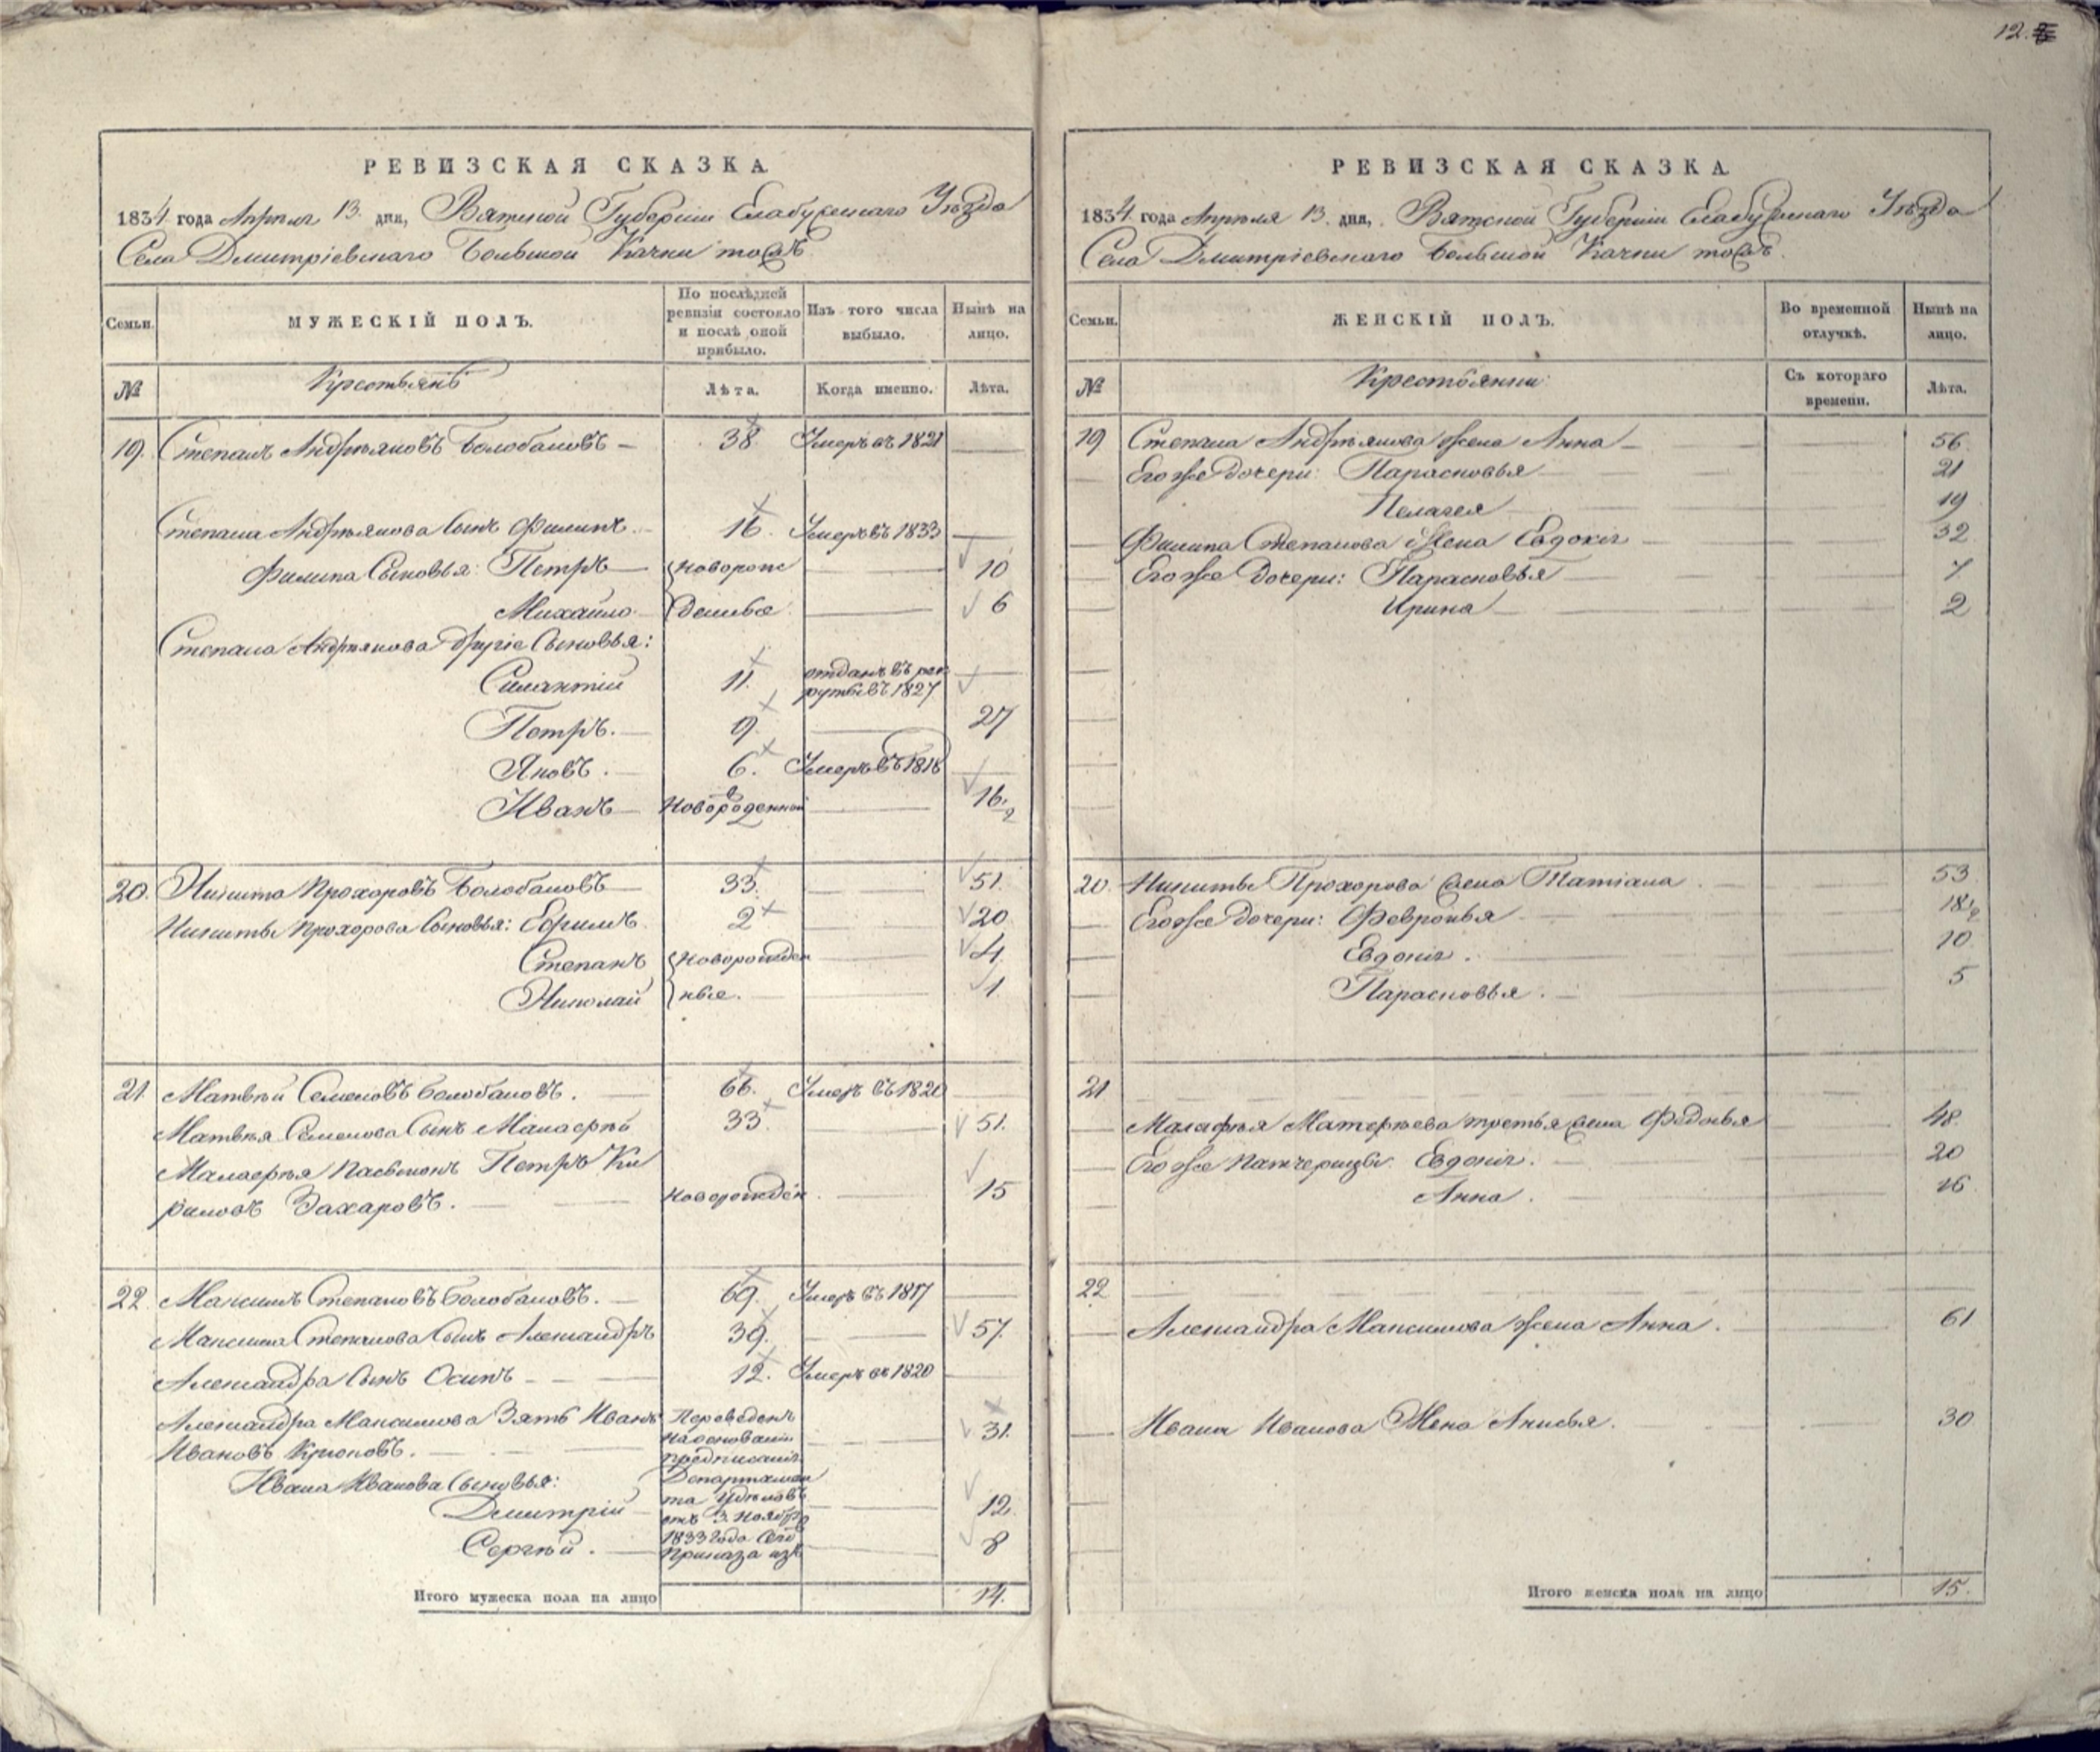 12.
РЕВИЗСКАЯ СКАЗКА
1834 года Апреля 13. дня, Вятской Губерніи Елабужскаго Уѣзда
Села Дмитріевскаго Большой Качки тожъ
Семьи.
МУЖЕСКІЙ ПОЛЪ.
По послѣдней ревизіи состояло и послѣ оной прибыло.
Изъ того числа выбыло.
Нынѣ на лицо.
№
Крестьянъ
Лѣта.
Когда именно.
Лѣта.
19. Степанъ Андрѣяновъ Болобановъ 38. Умеръ въ 1821
Степана Андрѣянова Сынъ Филипъ 16. Умеръ въ 1833
Филипа Сыновья: Петръ Новорож 10
Михайло денные 6
Степана Андрѣянова другіе Сыновья:
Силантій 11. отданъ въ рек
руты въ 1827
Петръ. 9. 27
Яковъ. 6. Умеръ въ 1818
Иванъ Новороденной 16 1/2
20. Никита Прохоровъ Болобановъ 33. 51.
Никиты Прохорова Сыновья: Ефимъ 2 20
Степанъ Новорожден 4
Николай ные. 1
21. Матвѣй Семеновъ Болобановъ. 66. Умеръ въ 1820
Матвѣя Семенова Сынъ Малафѣй 33. 51.
Малафѣя Пасынокъ Петръ Ки
риловъ Захаровъ. Новорожден 15
22. Максимъ Степановъ Болобановъ. 69. Умеръ въ 1817
Максима Степанова Сынъ Александръ 39. 57.
Александра Сынъ Осипъ 12. Умеръ въ 1820
Александра Максимова Зять Иванъ Переведенъ 31.
Ивановъ Крюковъ. на основаніи
предписанія
Ивана Иванова Сыновья: Департамен
та Удѣловъ
Дмитрій отъ 3. Ноября 12.
1833 года
Сергѣй. Приказа изъ 8
Итого мужеска пола на лицо 14.
РЕВИЗСКАЯ СКАЗКА
1834 года Апрѣля 13. дня, Вятской Губерніи Елабужскаго Уѣзда
Села Дмитріевскаго Большой Качки тожъ.
Семьи.
ЖЕНСКІЙ ПОЛЪ.
Во временной отлучкѣ.
Нынѣ на лицо.
№
Крестьянки
Съ котораго времени.
Лѣта.
19 Степана Андрѣянова Жена Анна 56
Его же дочери: Парасковья 21
Пелагея 19
Филипа Степанова Жена Евдокія 32
Его же дочери: Парасковья 7
Ирина 2
20. Никиты Прохорова жена Татіана 53
Его же дочери: Февронья 18 1/2
Евдокія. 10
Парасковья. 5
21
Малафѣя Матфѣева третья жена Федосья 48.
Его же Патчерицы: Евдокія. 20
Анна. 16
22
Александра Максимова жена Анна. 61
Ивана Иванова Жена Анисья. 30
Итого женска пола на лицо 15.